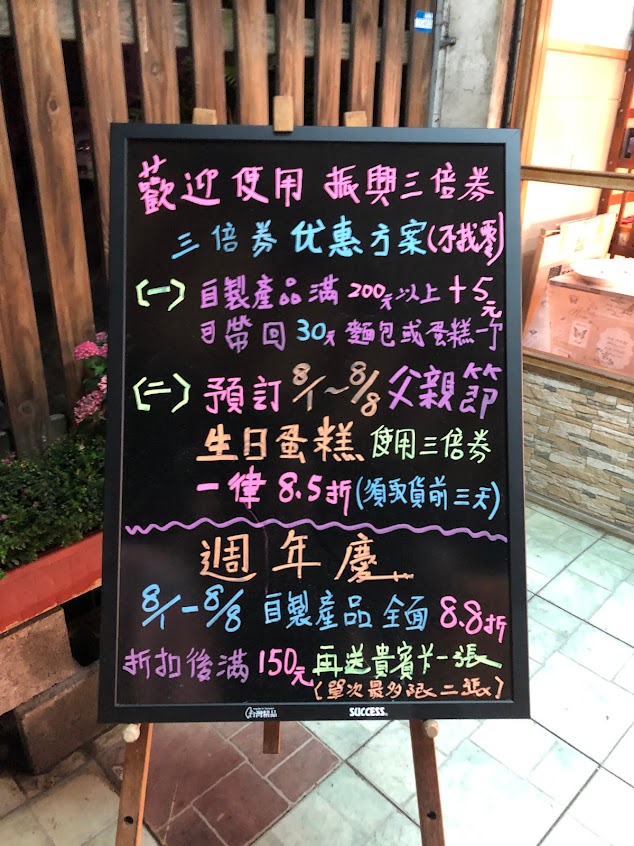 歡迎使用振興三倍券
三倍券优惠方案(不找零)
(一)自製產品滿200元以上+5元
可帶回30元麵包或蛋糕一个
(二)預訂8/1~8/8父親節
生日蛋糕使用三倍券
一律8.5折(須取貨前三天)
週年慶...
8/1-8/8自製產品全面8.8折
折扣後滿150元再送貴賓卡一張
(單次最多限二張)
台灣精品
SUCCESS